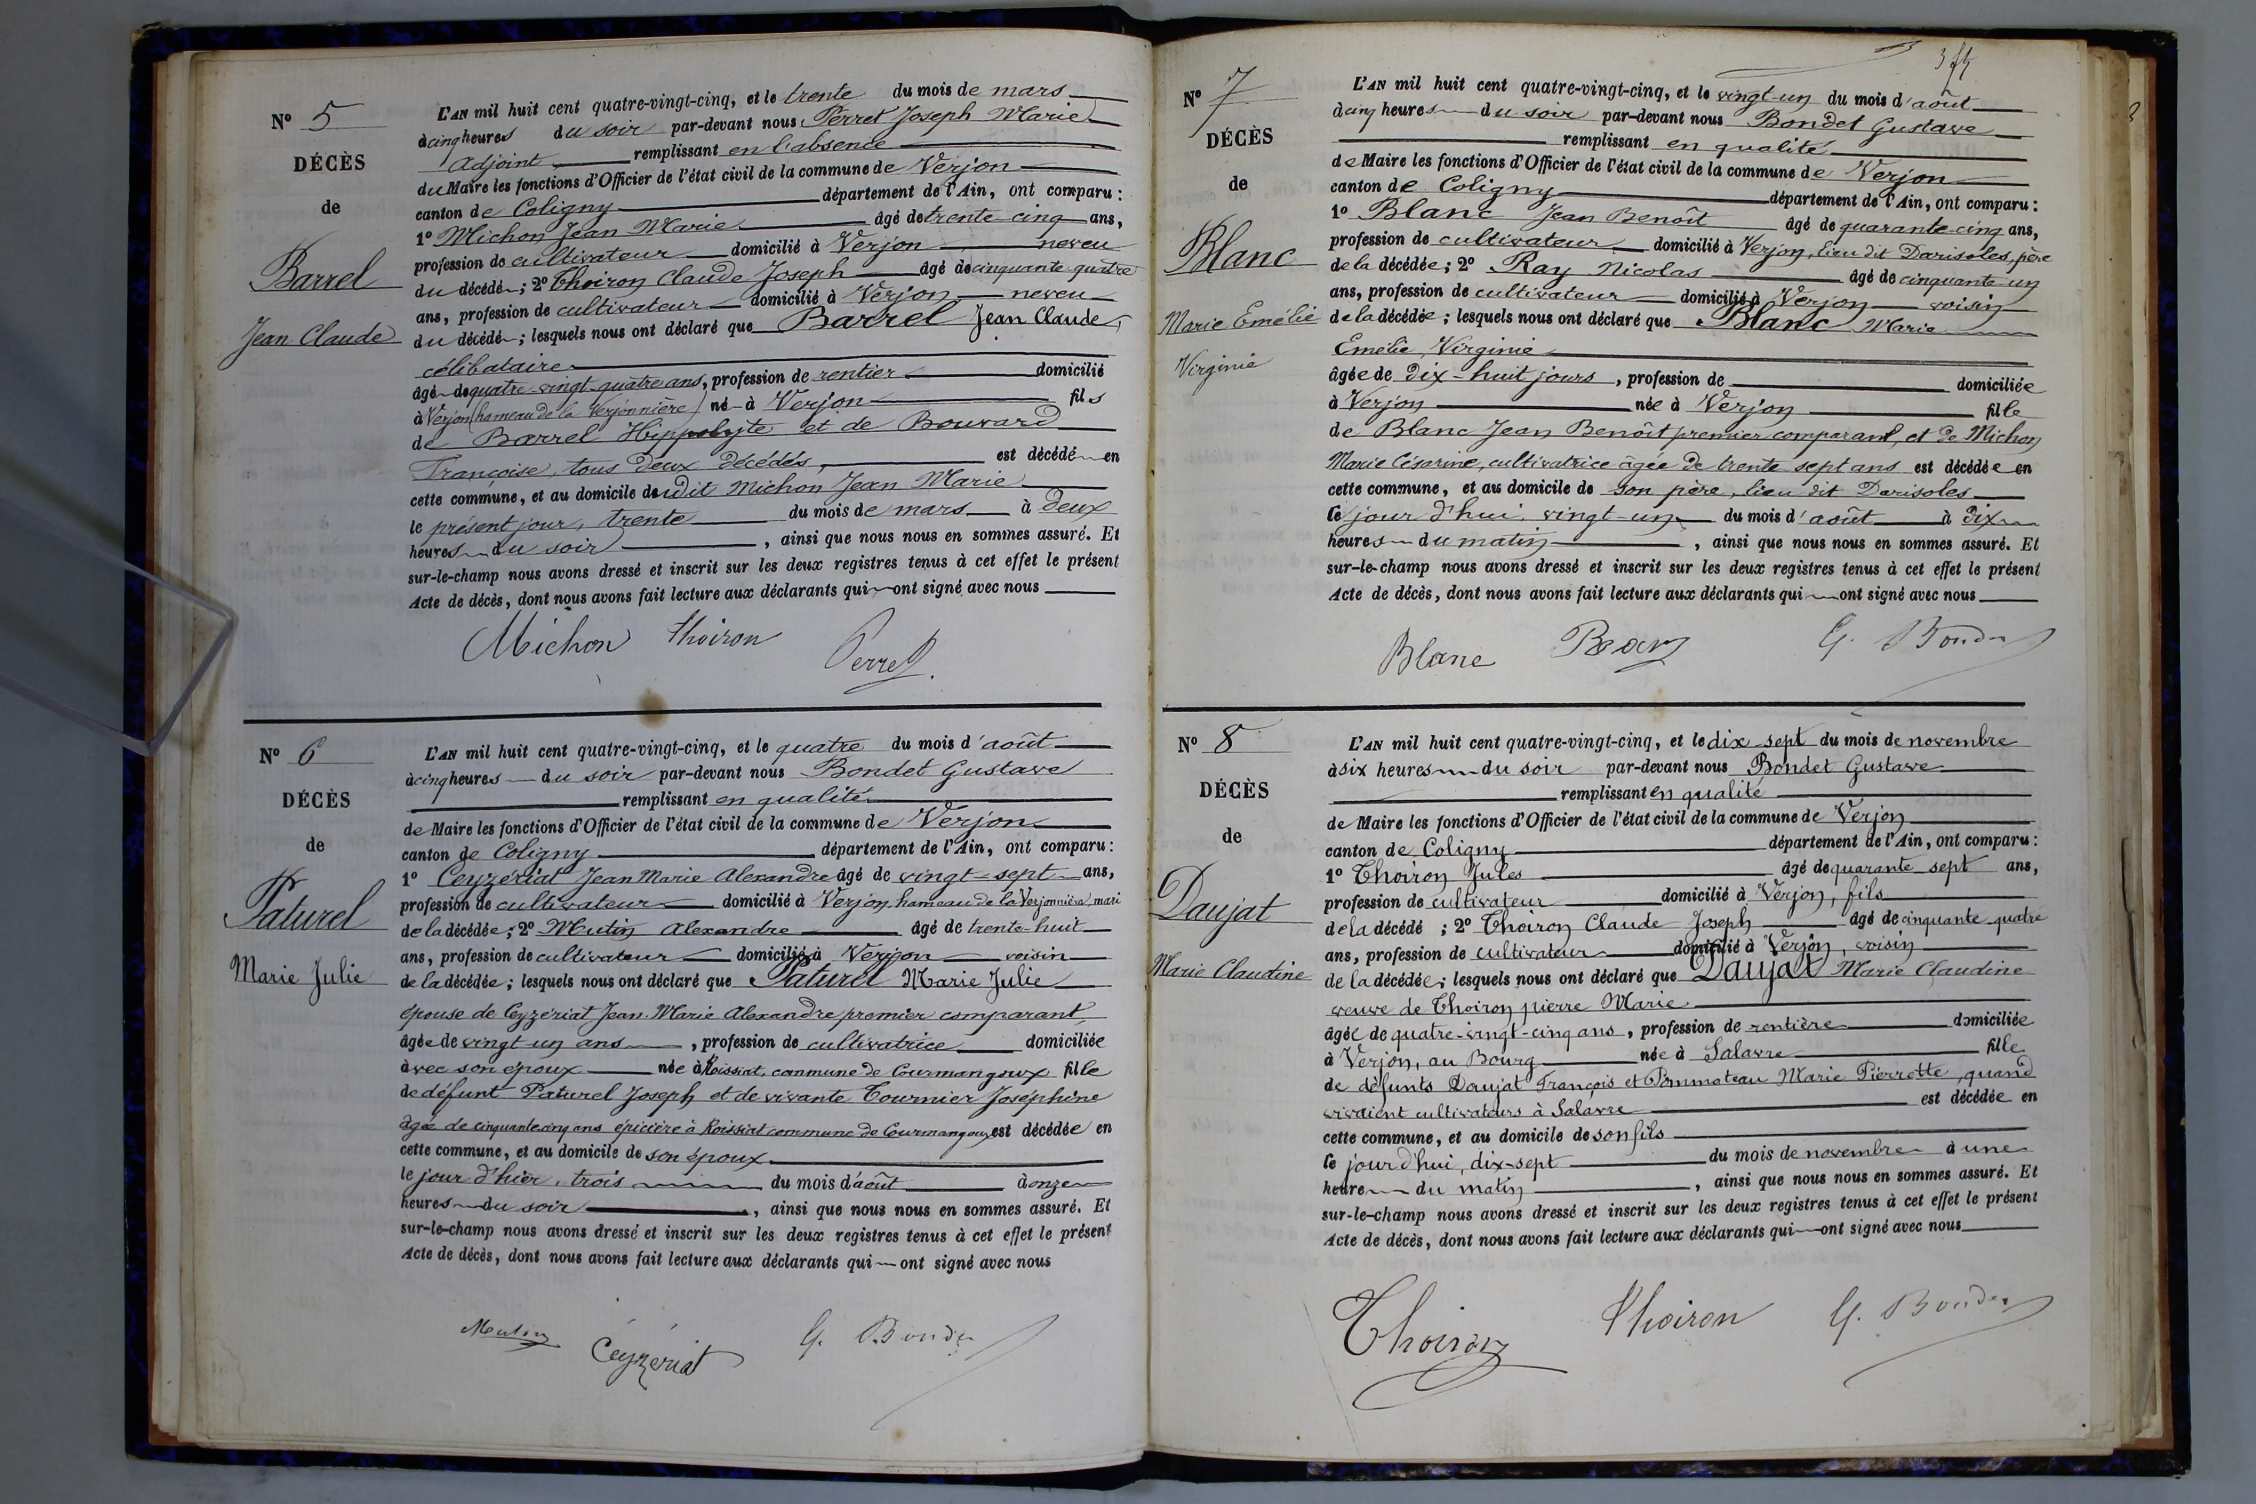 N° 5
DÉCÈS
de
Barrel
Jean Claude
L'AN mil huit cent quatre-vingt-cinq, et le trente du mois de mars
à cinq heures du soir par-devant nous Perret Joseph Marie
Adjoint remplissant en l'absence
du Maire les fonctions d'Officier de l'état civil de la commune de Verjon
canton de Coligny département de l'Ain, ont comparu :
1° Michon Jean Marie âgé de trente-cinq ans,
profession de cultivateur domicilié à Verjon neveu
du décédé ; 2° Thoiron Claude Joseph âgé de cinquante quatre
ans, profession de cultivateur domicilié à Verjon neveu
du décédé ; lesquels nous ont déclaré que Barrel Jean Claude,
célibataire
âgé de quatre-vingt-quatre ans, profession de rentier domicilié
à Verjon (hameau de la Verjonnière) né à Verjon fils
de Barrel Hippolyte et de Bouvard
Françoise, tous deux décédés, est décédé en
cette commune, et au domicile dudit Michon Jean Marie
le présent jour, trente du mois de mars à deux
heures du soir , ainsi que nous nous en sommes assuré. Et
sur-le-champ nous avons dressé et inscrit sur les deux registres tenus à cet effet le présent
Acte de décès, dont nous avons fait lecture aux déclarants qui ont signé avec nous
Michon Thoiron Perret
N° 6
DÉCÈS
de
Paturel
Marie Julie
L'AN mil huit cent quatre-vingt-cinq, et le quatre du mois d'août
à cinq heures du soir par-devant nous Bondet Gustave
remplissant en qualité
de Maire les fonctions d'Officier de l'état civil de la commune de Verjon
canton de Coligny département de l'Ain, ont comparu :
1° Ceyzériat Jean Marie Alexandre âgé de vingt-sept ans,
profession de cultivateur domicilié à Verjon, hameau de la Verjonnière, mari
de la décédée ; 2° Mutin Alexandre âgé de trente-huit
ans, profession de cultivateur domicilié à Verjon voisin
de la décédée ; lesquels nous ont déclaré que Paturel Marie Julie
épouse de Ceyzériat Jean-Marie Alexandre premier comparant,
âgée de vingt-un ans , profession de cultivatrice domiciliée
avec son époux née à Roissiat, commune de Courmangoux fille
de défunt Paturel Joseph et de vivante Tournier Joséphine
âgée de cinquante cinq ans épicière à Roissiat commune de Courmangoux est décédée en
cette commune, et au domicile de son époux
le jour d'hier, trois du mois d'août à onze
heures du soir , ainsi que nous nous en sommes assuré. Et
sur-le-champ nous avons dressé et inscrit sur les deux registres tenus à cet effet le présent
Acte de décès, dont nous avons fait lecture aux déclarants qui ont signé avec nous
Mutin Ceyzériat G. Bondet
N° 7
DÉCÈS
de
Blanc
Marie Emélie
Virginie
L'AN mil huit cent quatre-vingt-cinq, et le vingt-un du mois d'août
à cinq heures du soir par-devant nous Bondet Gustave
remplissant en qualité
de Maire les fonctions d'Officier de l'état civil de la commune de Verjon
canton de Coligny département de l'Ain, ont comparu :
1° Blanc Jean Benoît âgé de quarante-cinq ans,
profession de cultivateur domicilié à Verjon, lieu dit Darisoles, père
de la décédée ; 2° Ray Nicolas âgé de cinquante-un
ans, profession de cultivateur domicilié à Verjon voisin
de la décédée ; lesquels nous ont déclaré que Blanc Marie
Emélie, Virginie
âgée de dix-huit jours , profession de domiciliée
à Verjon née à Verjon fille
de Blanc Jean Benoît premier comparant, et de Michon
Marie Césarine, cultivatrice âgée de trente sept ans est décédée en
cette commune, et au domicile de son père, lieu dit Darisoles
le jour d'hui, vingt-un du mois d'août à dix
heures du matin , ainsi que nous nous en sommes assuré. Et
sur-le-champ nous avons dressé et inscrit sur les deux registres tenus à cet effet le présent
Acte de décès, dont nous avons fait lecture aux déclarants qui ont signé avec nous
Blanc Ray G. Bondet
N° 8
DÉCÈS
de
Daujat
Marie Claudine
L'AN mil huit cent quatre-vingt-cinq, et le dix-sept du mois de novembre
à six heures du soir par-devant nous Bondet Gustave
remplissant en qualité
de Maire les fonctions d'Officier de l'état civil de la commune de Verjon
canton de Coligny département de l'Ain, ont comparu :
1° Thoiron Jules âgé de quarante sept ans,
profession de cultivateur domicilié à Verjon, fils
de la décédé ; 2° Thoiron Claude Joseph âgé de cinquante-quatre
ans, profession de cultivateur domicilié à Verjon, voisin
de la décédée ; lesquels nous ont déclaré que Daujat Marie Claudine
veuve de Thoiron pierre Marie
âgée de quatre-vingt-cinq ans , profession de rentière domiciliée
à Verjon, au Bourg née à Salavre fille
de défunts Daujat François et Pommateau Marie Pierrette, quand
vivaient cultivateurs à Salavre est décédée en
cette commune, et au domicile de son fils
le jour d'hui, dix-sept du mois de novembre à une
heure du matin , ainsi que nous nous en sommes assuré. Et
sur-le-champ nous avons dressé et inscrit sur les deux registres tenus à cet effet le présent
Acte de décès, dont nous avons fait lecture aux déclarants qui ont signé avec nous
Thoiron Thoiron G. Bondet